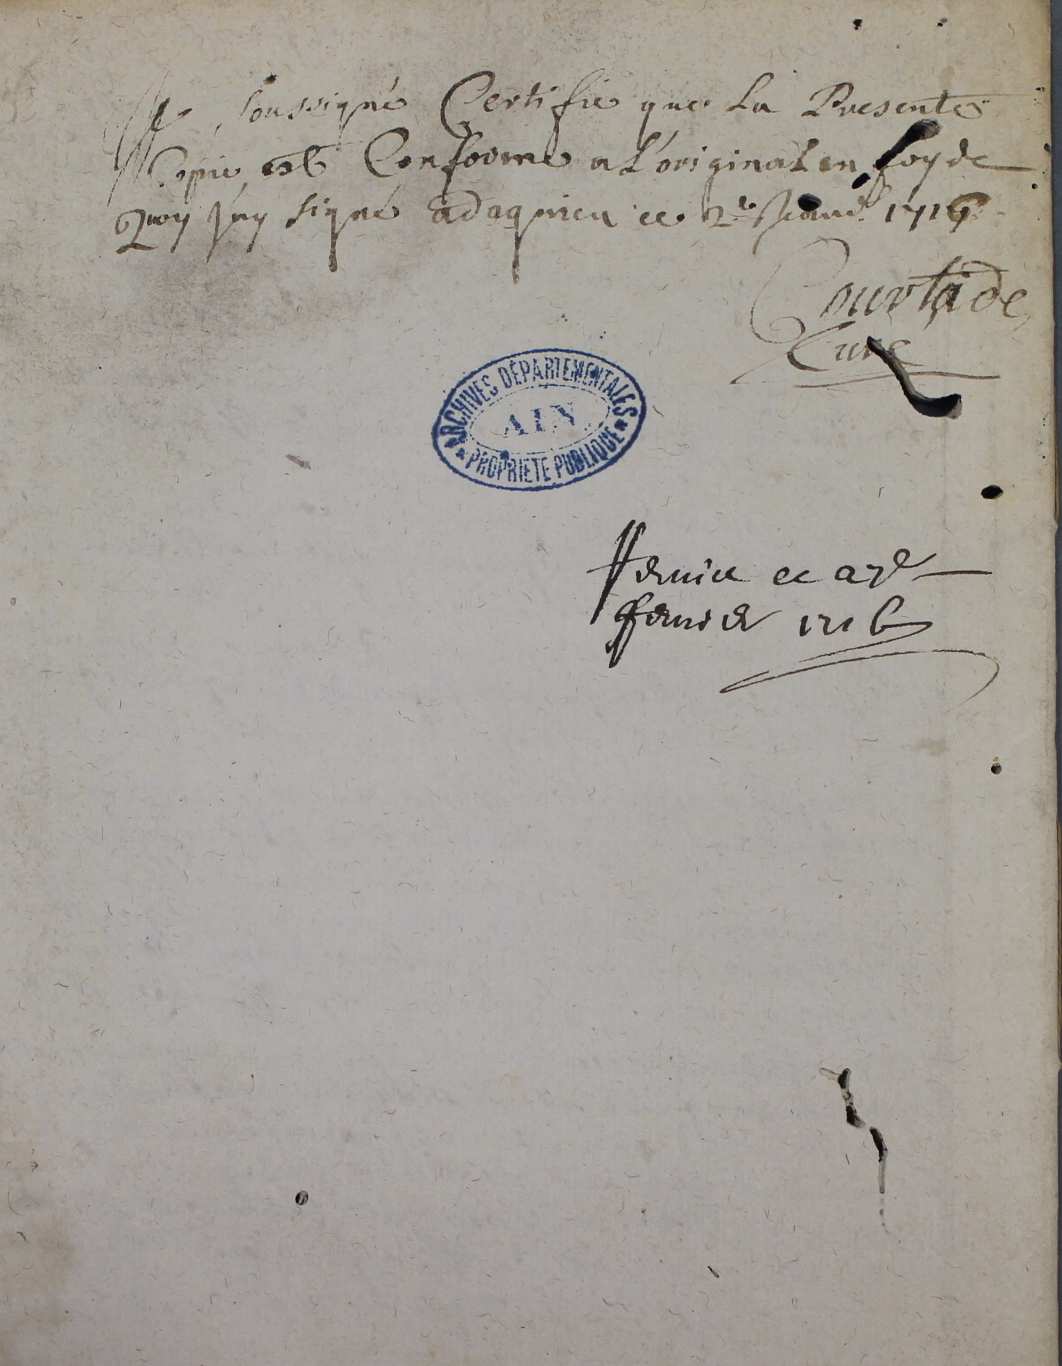 Je soussigné Certifie que La Presente
Copie est Conforme a L'original en foy de
Quoy j'ay signé a dagnieu ce 2e Janv. 1716
Courtade
Curé
ARCHIVES DÉPARTEMENTALES
AIN
PROPRIETE PUBLIQUE
ce 27e
fevrier 1716